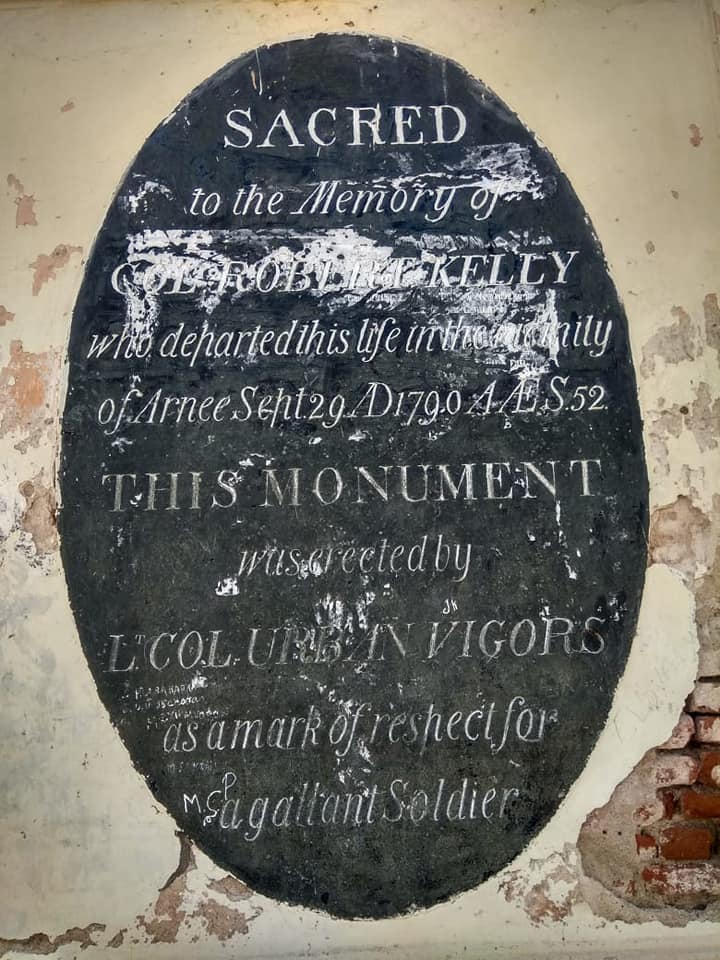 SACRED
to the Memory of
COL ROBERT KELLY
who departed this life in the vicinity
of Arnee Sept. 29 AD 1790 A Æ.S. 52.
THIS MONUMENT
was erected by
LT COL. URBAN VIGORS
as a mark of respect for
M.G P
a gallant Soldier